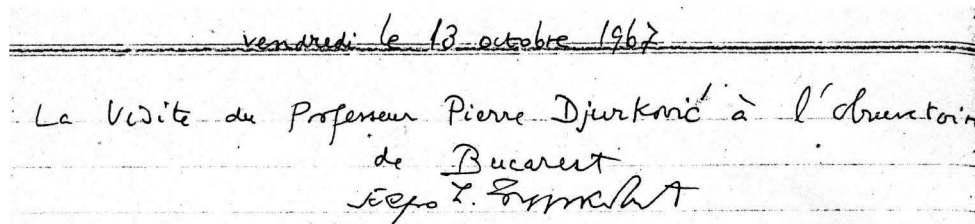 vendredi le 13 octobre 1967
La Visite du Professeur Pierre Djurković à l'Observatoir
de Bucarest